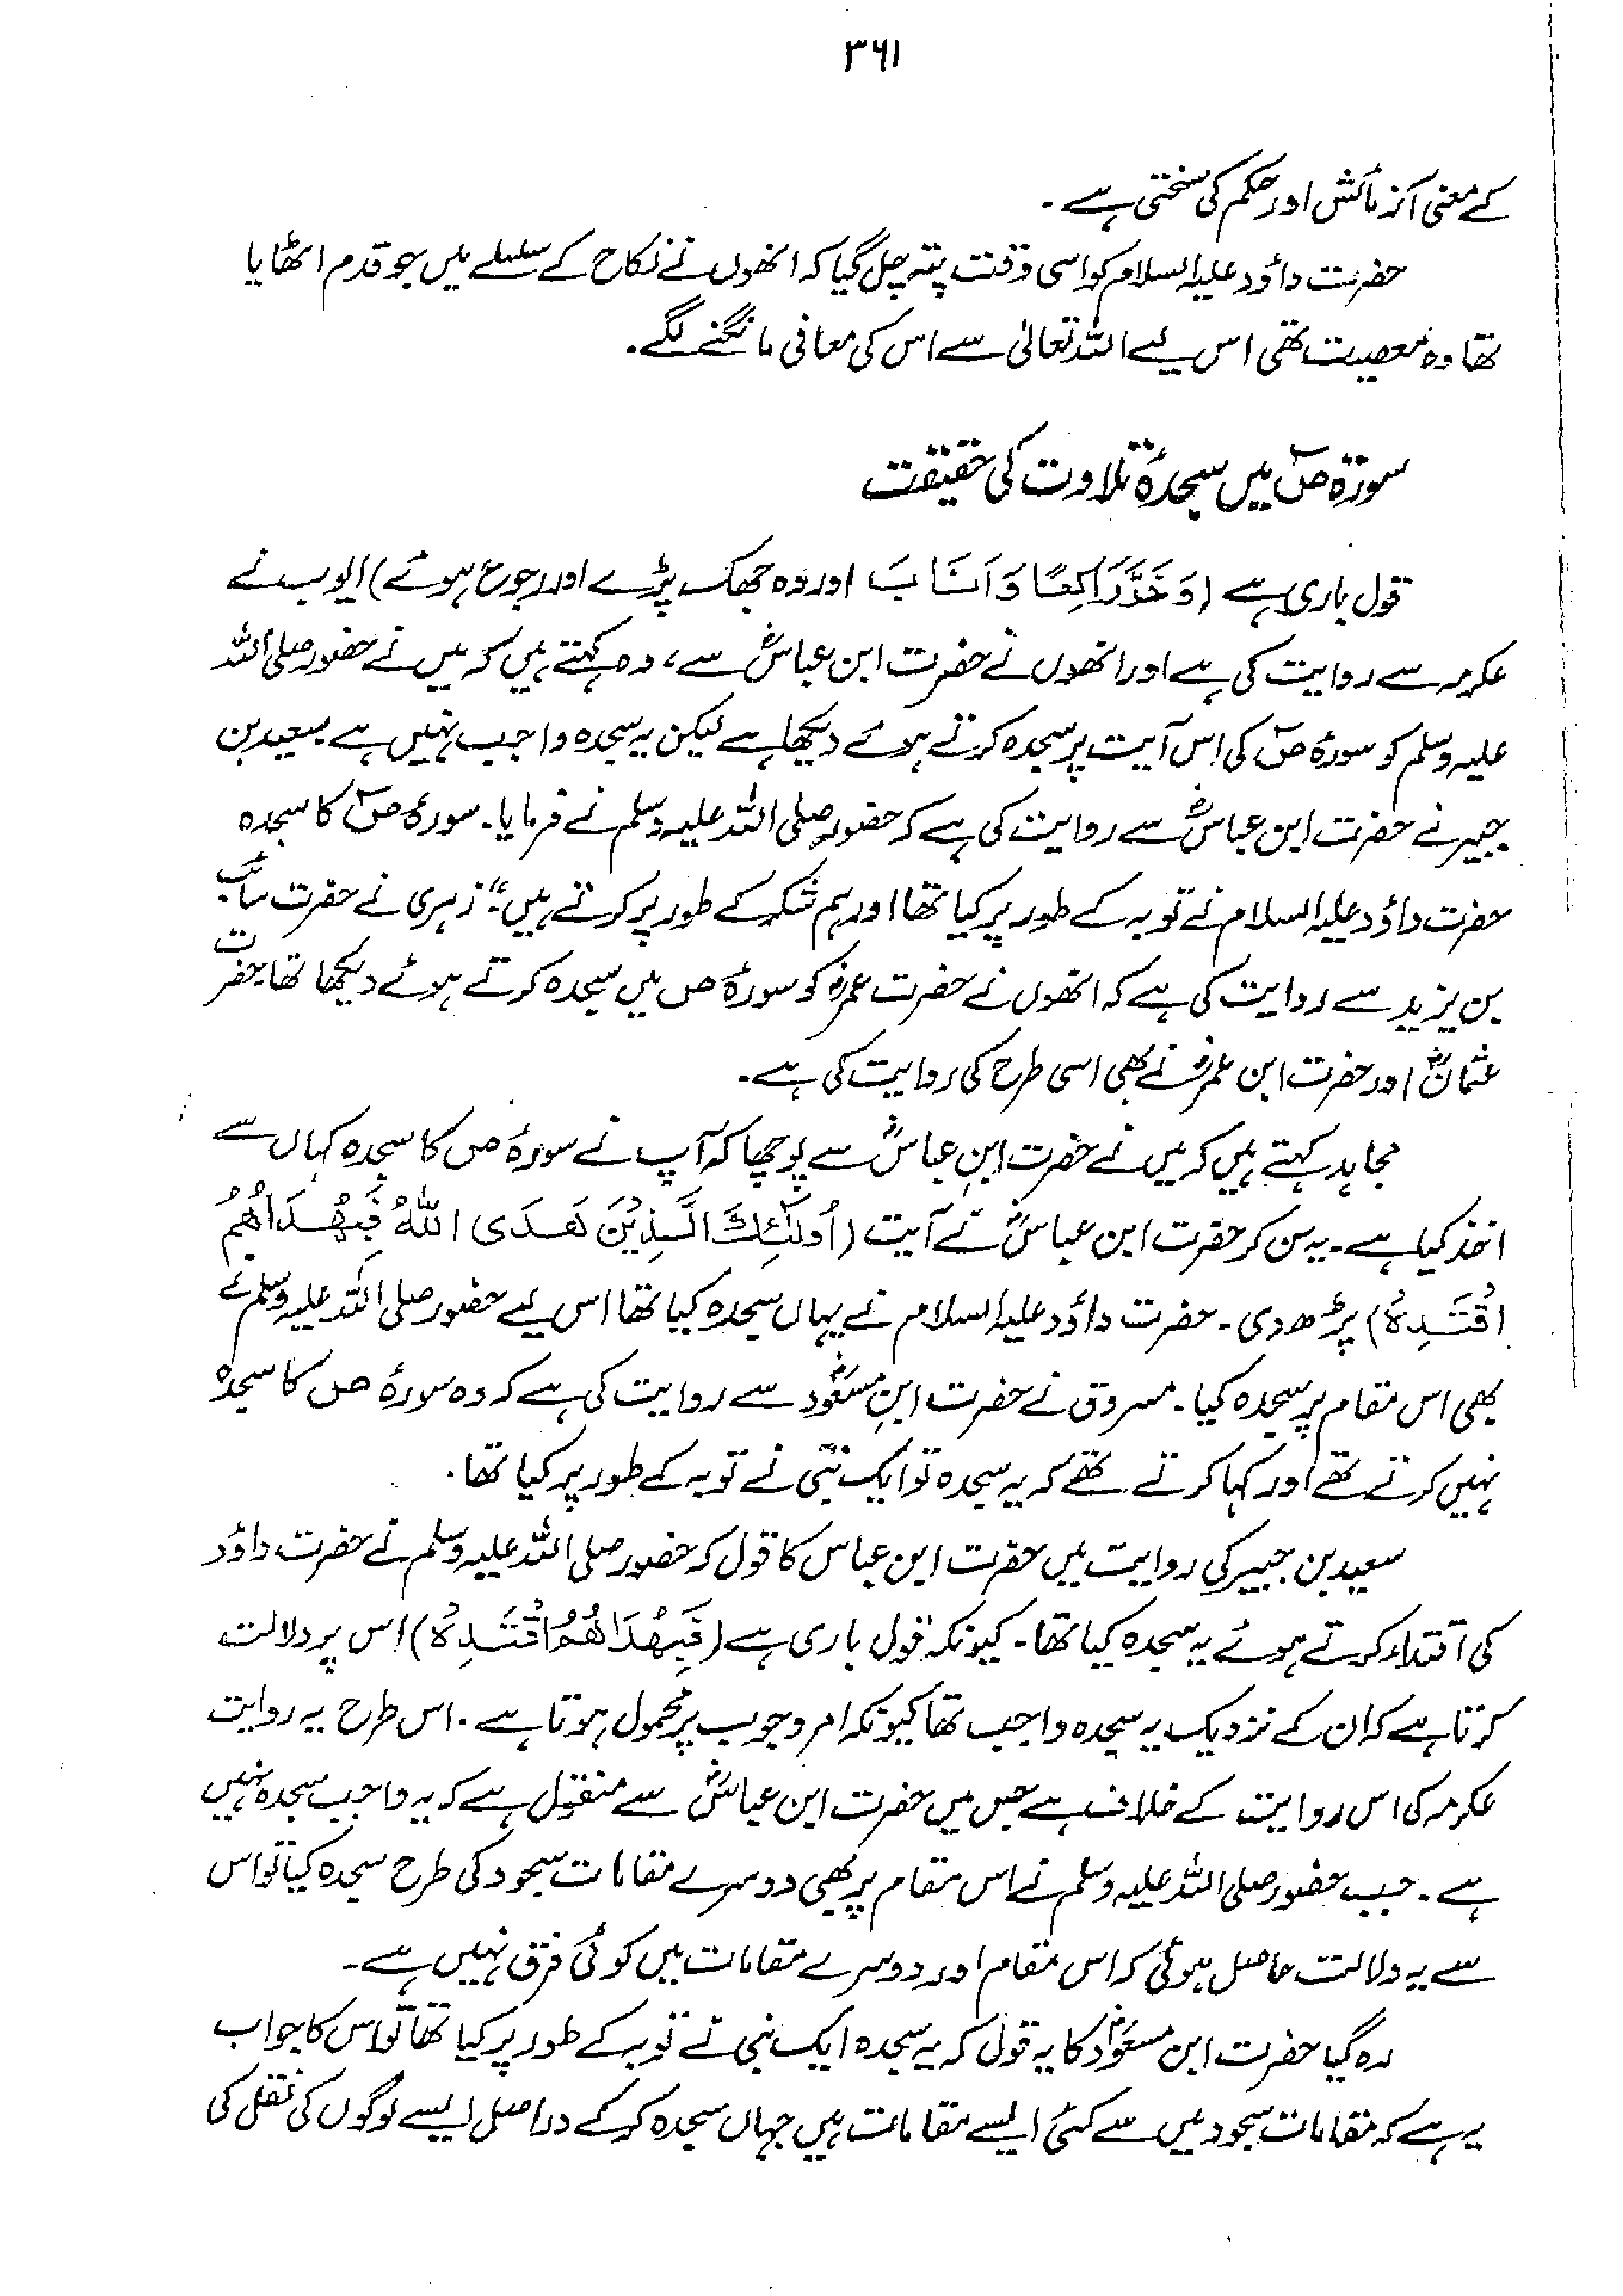 ۳۶۱
کے معنی آزمائش اور حکم کی سختی ہے۔
حضرت داؤد علیہ السلام کو اسی وقت پتہ چل گیا کہ انھوں نے نکاح کے سلسلے میں جو قدم اٹھایا
تھا وہ معصیت تھی اس لیے اللہ تعالیٰ سے اس کی معافی مانگنے لگے۔
سورۃ صٓ میں سجدۂ تلاوت کی حقیقت
قول باری ہے (وَخَرَّ رَاكِعًا وَاَنَابَ اور وہ جھک پڑے اور رجوع ہوئے) ایوب نے
عکرمہ سے روایت کی ہے اور انھوں نے حضرت ابن عباسؓ سے، وہ کہتے ہیں کہ میں نے حضور صلی اللہ
علیہ وسلم کو سورۂ صٓ کی اس آیت پر سجدہ کرتے ہوئے دیکھا ہے لیکن یہ سجدہ واجب نہیں ہے۔ سعید بن
جبیر نے حضرت ابن عباسؓ سے روایت کی ہے کہ حضور صلی اللہ علیہ وسلم نے فرمایا۔ سورۂ صٓ کا سجدہ
حضرت داؤد علیہ السلام نے توبہ کے طور پر کیا تھا اور ہم شکر کے طور پر کرتے ہیں"؛ زہری نے حضرت سائب
بن یزید سے روایت کی ہے کہ انھوں نے حضرت عمرؓ کو سورۂ ص میں سجدہ کرتے ہوئے دیکھا تھا۔ حضرت
عثمانؓ اور حضرت ابن عمرؓ نے بھی اسی طرح کی روایت کی ہے۔
مجاہد کہتے ہیں کہ میں نے حضرت ابنِ عباسؓ سے پوچھا کہ آپ نے سورۂ ص کا سجدہ کہاں سے
اخذ کیا ہے۔ یہ سن کر حضرت ابن عباسؓ نے آیت (اُولٰٓئِكَ الَّذِيْنَ هَدَى اللهُ فَبِهُدَاهُمُ
اقْتَدِهْ) پڑھ دی۔ حضرت داؤد علیہ السلام نے یہاں سجدہ کیا تھا اس لیے حضور صلی اللہ علیہ وسلم نے
بھی اس مقام پر سجدہ کیا۔ مسروق نے حضرت ابنِ مسعودؓ سے روایت کی ہے کہ وہ سورۂ ص کا سجدہ
نہیں کرتے تھے اور کہا کرتے تھے کہ یہ سجدہ تو ایک نبی نے توبہ کے طور پر کیا تھا۔
سعید بن جبیر کی روایت میں حضرت ابن عباس کا قول کہ حضور صلی اللہ علیہ وسلم نے حضرت داؤد
کی اقتداء کرتے ہوئے یہ سجدہ کیا تھا۔ کیونکہ قول باری ہے (فَبِهُدَاهُمُ اقْتَدِهْ) اس پر دلالت
کرتا ہے کہ ان کے نزدیک یہ سجدہ واجب تھا کیونکہ امر وجوب پر محمول ہوتا ہے۔ اس طرح یہ روایت
عکرمہ کی اس روایت کے خلاف ہے جس میں حضرت ابن عباسؓ سے منقول ہے کہ یہ واجب سجدہ نہیں
ہے۔ جب حضور صلی اللہ علیہ وسلم نے اس مقام پر بھی دوسرے مقامات سجود کی طرح سجدہ کیا تو اس
سے یہ دلالت حاصل ہوئی کہ اس مقام اور دوسرے مقامات میں کوئی فرق نہیں ہے۔
رہ گیا حضرت ابن مسعودؓ کا یہ قول کہ یہ سجدہ ایک نبی نے توبہ کے طور پر کیا تھا تو اس کا جواب
یہ ہے کہ مقامات سجود میں سے کئی ایسے مقامات ہیں جہاں سجدہ کرکے دراصل ایسے لوگوں کی نقل کی